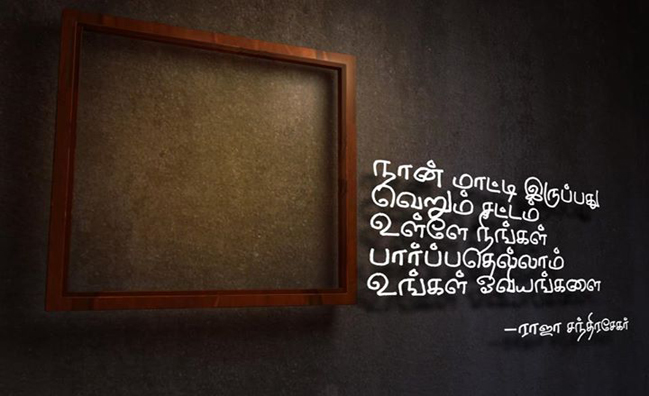 நான் மாட்டி இருப்பது
வெறும் சட்டம்
உள்ளே நீங்கள்
பார்ப்பதெல்லாம்
உங்கள் ஓவியங்களை
–ராஜா சந்திரசேகர்